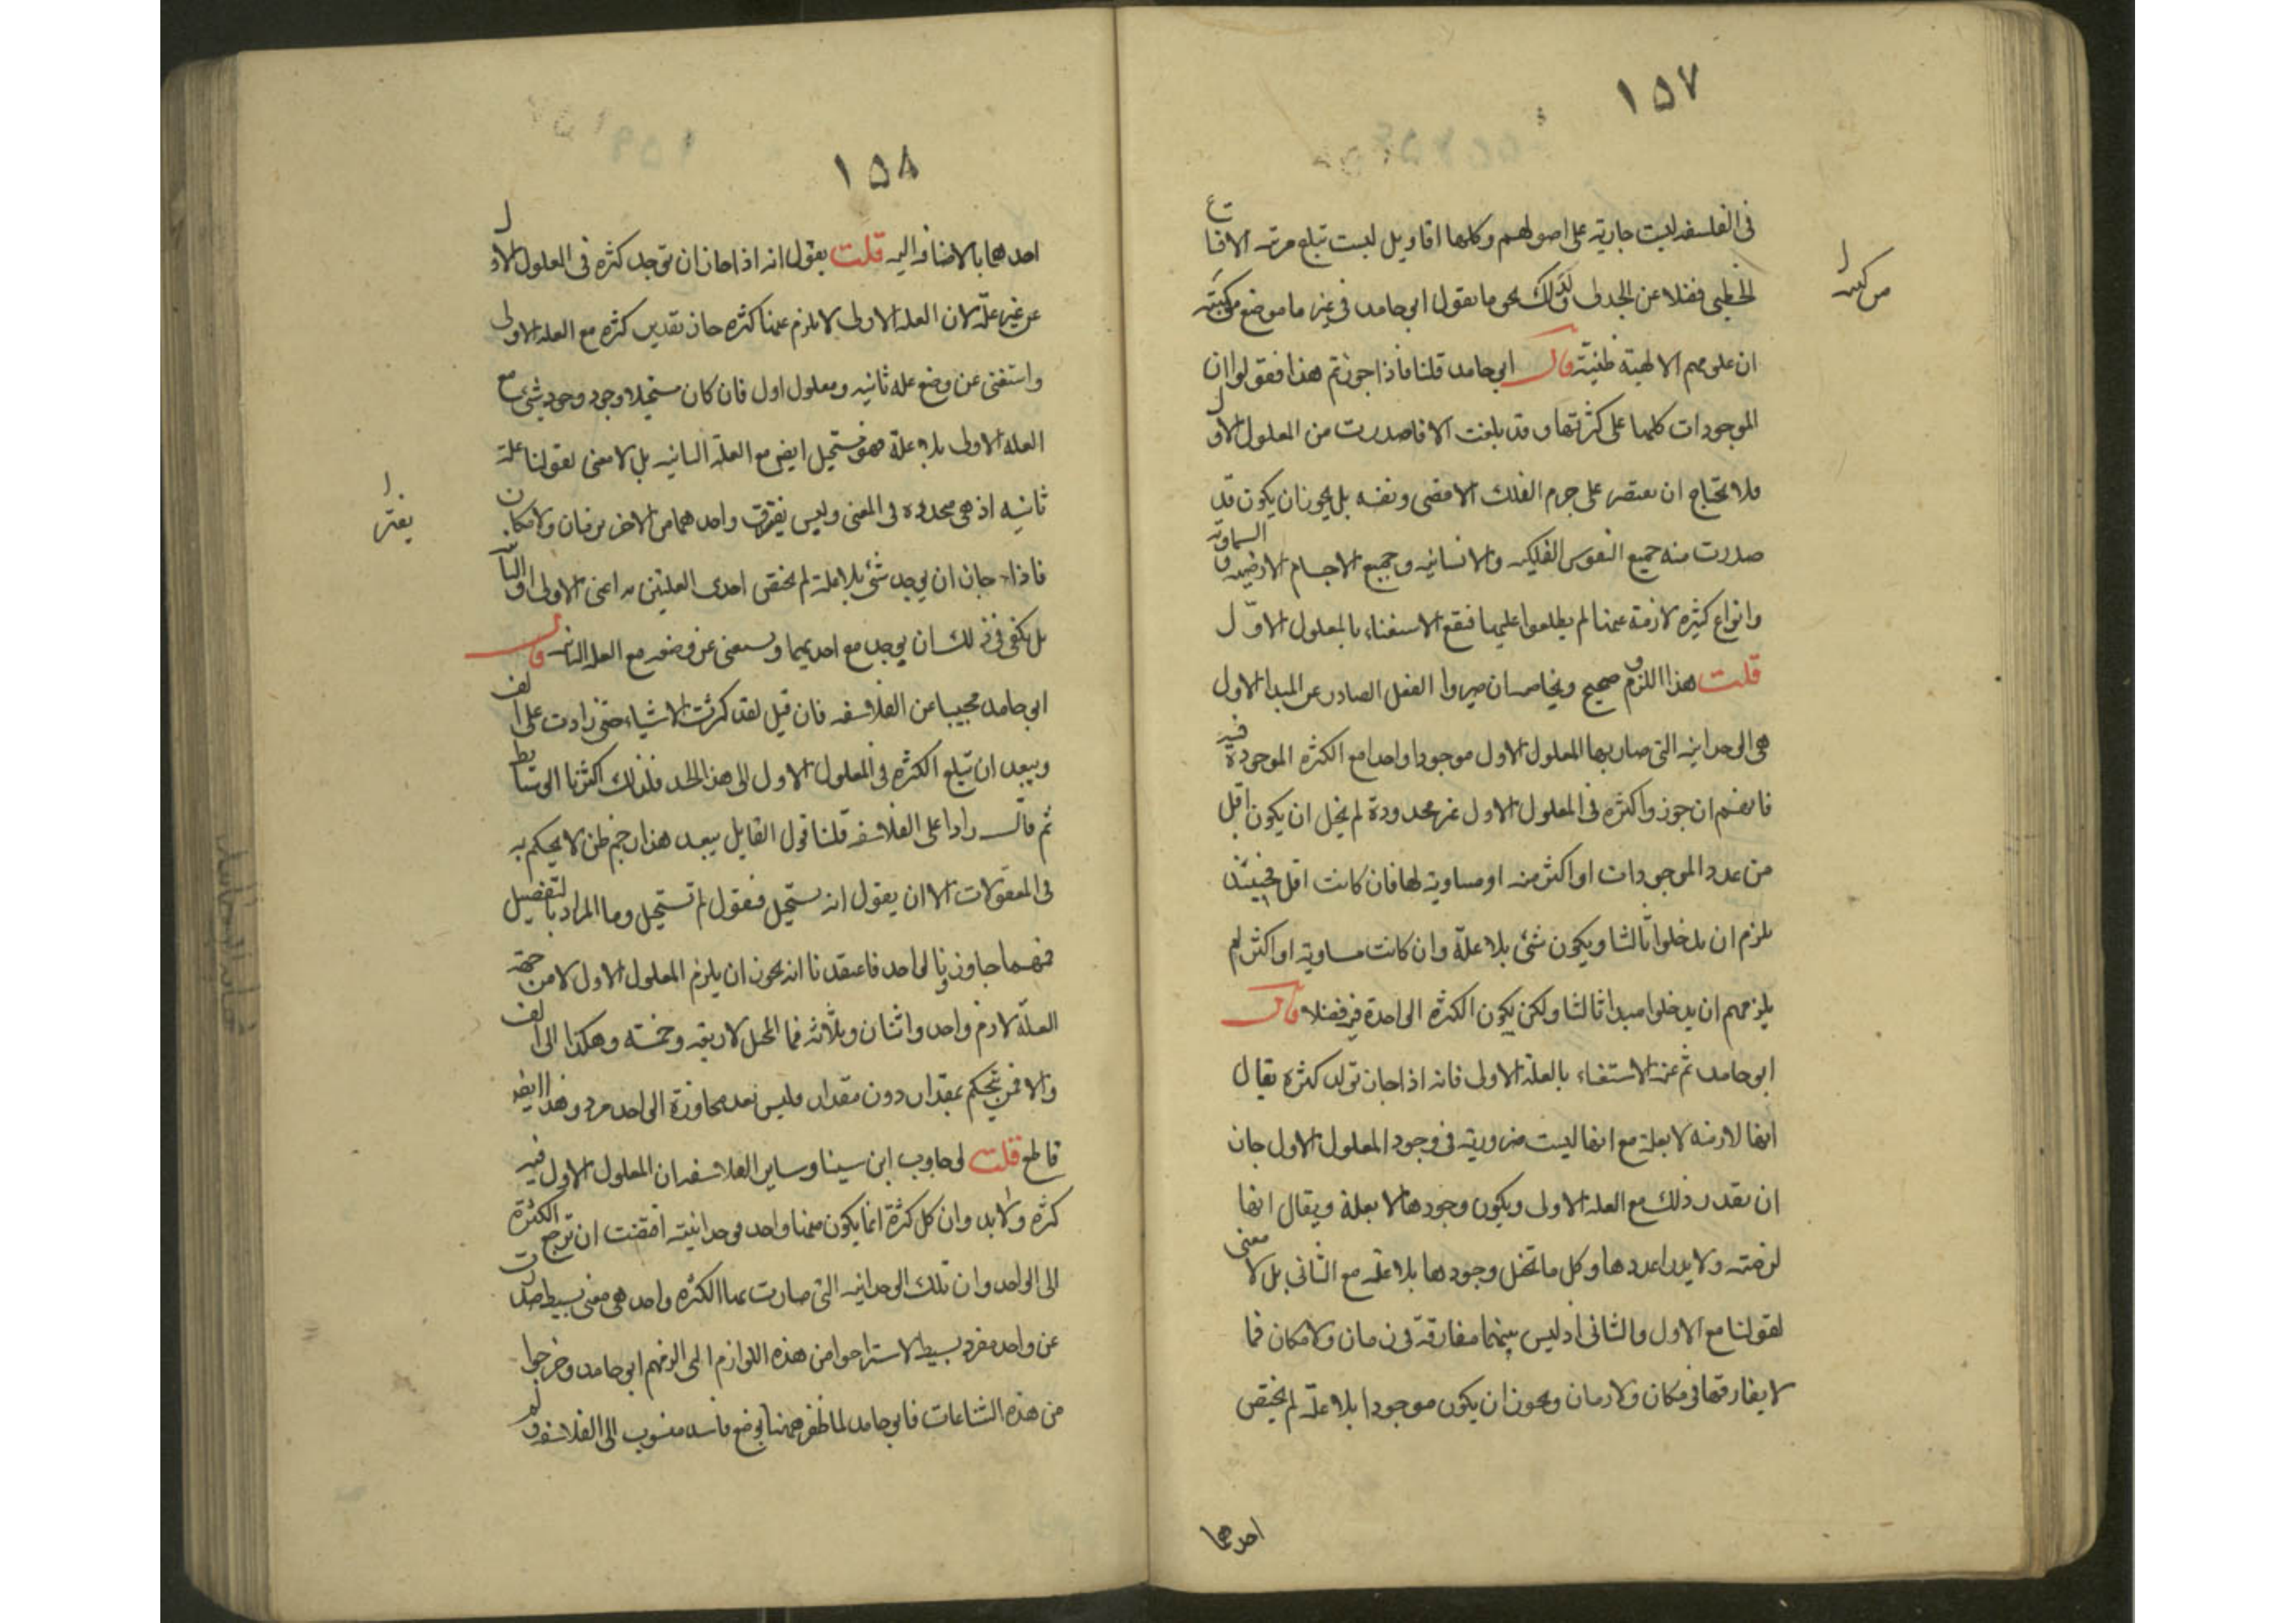 ١٥٧
فى الفلسفه ليست جارية على اصولهم وكلها اقاويل ليست تبلغ مرتبة الاقناع
الخطبى فضلا عن الجدلى ولذلك يحق ما يقول ابى حامد فى غير ما موضع من كتبه
من كتبه
ان علومهم الالهية ظنية قال ابى حامد قلنا فاذا جوزتم هذا فقولوا ان
الموجودات كلها على كثرتها وقد بلغت الافا صدرت من المعلول الاول
فلا تحتاج ان يقتصر على جرم الفلك الاقصى ونفسه بل يجوز ان يكون قد
صدرت منه جميع النفوس الفلكيه والانسانيه وجميع الاجسام الارضيه والسماوية
وانواع كثيره لازمة عنها لم يطلعوا عليها فيقع الاستغناء بالمعلول الاول
قلت هذا اللزوم صحيح وبخاصه ان صيروا الفعل الصادر عن المبدا الاول
هى الوحدانيه التى صار بها المعلول الاول موجودا واحدا مع الكثره الموجودة فيه
فانهم ان جوزوا كثره فى المعلول الاول غير محدودة لم يخل ان يكون اقل
من عدد الموجودات او اكثر منه او مساوية لها فان كانت اقل فحينئذ
يلزم ان يدخلوا ثالثا ويكون شئ بلا علة وان كانت مساوية او اكثر لم
يلزمهم ان يدخلوا مبدا ثالثا ولكن يكون الكثره الواحدة فيه فضلا قال
ابى حامد ثم عنه الاستغناء بالعلة الاولى فانه اذا جاز تولد كثره يقال
انها لازمه لا بعلة مع انها ليست ضرورية فى وجود المعلول الاول جاز
ان يقدر ذلك مع العله الاولى ويكون وجودها لا بعلة ويقال انها
لزمت ولا يدرا عددها وكل ما تخيل وجودها بلا علة مع الثانى بل لا معنى
لقولنا مع الاول والثانى اذ ليس بينهما مفارقة فى زمان ولا مكان فما
لا يفارقهما فى مكان ولا زمان ويجوز ان يكون موجودا بلا علة لم يختص
احدهما
١٥٨
احدهما بالاضافه اليه قلت يقول انه اذا جاز ان توجد كثره فى المعلول الاول
عن غير علة لان العله الاولى لا يلزم عنها كثره جاز تقدير كثره مع العله الاولى
واستغنى عن وضع عله ثانيه ومعلول اول فان كان مستحيلا وجود وجود شئ مع
العله الاولى بلا علة فهو مستحيل ايض مع العلة الثانيه بل لا معنى لقولنا علة
ثانيه اذ هى محدوده فى المعنى وليس يفترق واحدهما من الاخر بزمان ولا مكان
يفترق
فاذا جاز ان يوجد شئ بلا علة لم يختص احدى العلتين به اعنى الاولى او الثانية
بل يكفى فى ذلك ان يوجد مع احديهما ويستغنى عن وضعه مع العله الثانيه قال
ابى حامد مجيبا عن الفلاسفه فان قيل لقد كثرت الاشياء حتى زادت على الف
ويبعد ان تبلغ الكثره فى المعلول الاول الى هذا الحد فلذلك اكثرنا الوسائط
ثم قال رادا على الفلاسفه قلنا قول القايل يبعد هذا رجم ظن لا يحكم به
فى المعقولات الا ان يقول انه يستحيل فنقول لم تستحيل وما المراد بالتفصيل
فمهما جاوزنا الواحد فاعتقدنا انه يجوز ان يلزم المعلول الاول لا من جهة
العلة لازم واحد واثنان وثلاثه فما المحيل لاربعه وخمسه وهكذا الى الف
والا فمن يتحكم بمقدار دون مقدار فليس بعد مجاوزة الواحد مرد وهذا ايض
قاطع قلت لو جاوب ابن سينا وساير الفلاسفه ان المعلول الاول فيه
كثره ولا بد وان كل كثرة انما يكون منها واحد بوحدانية اقتضت ان ترجع الكثرة
الى الواحد وان تلك الوحدانيه التى صارت بها الكثره واحد هى معنى بسيط صدرت
عن واحد مفرد بسيط لاستراحوا من هذه اللوازم التى الزمهم ابى حامد وخرجوا
من هذه الشناعات فابى حامد لما ظفر ههنا بوضع فاسد منسوب الى الفلاسفه ولم